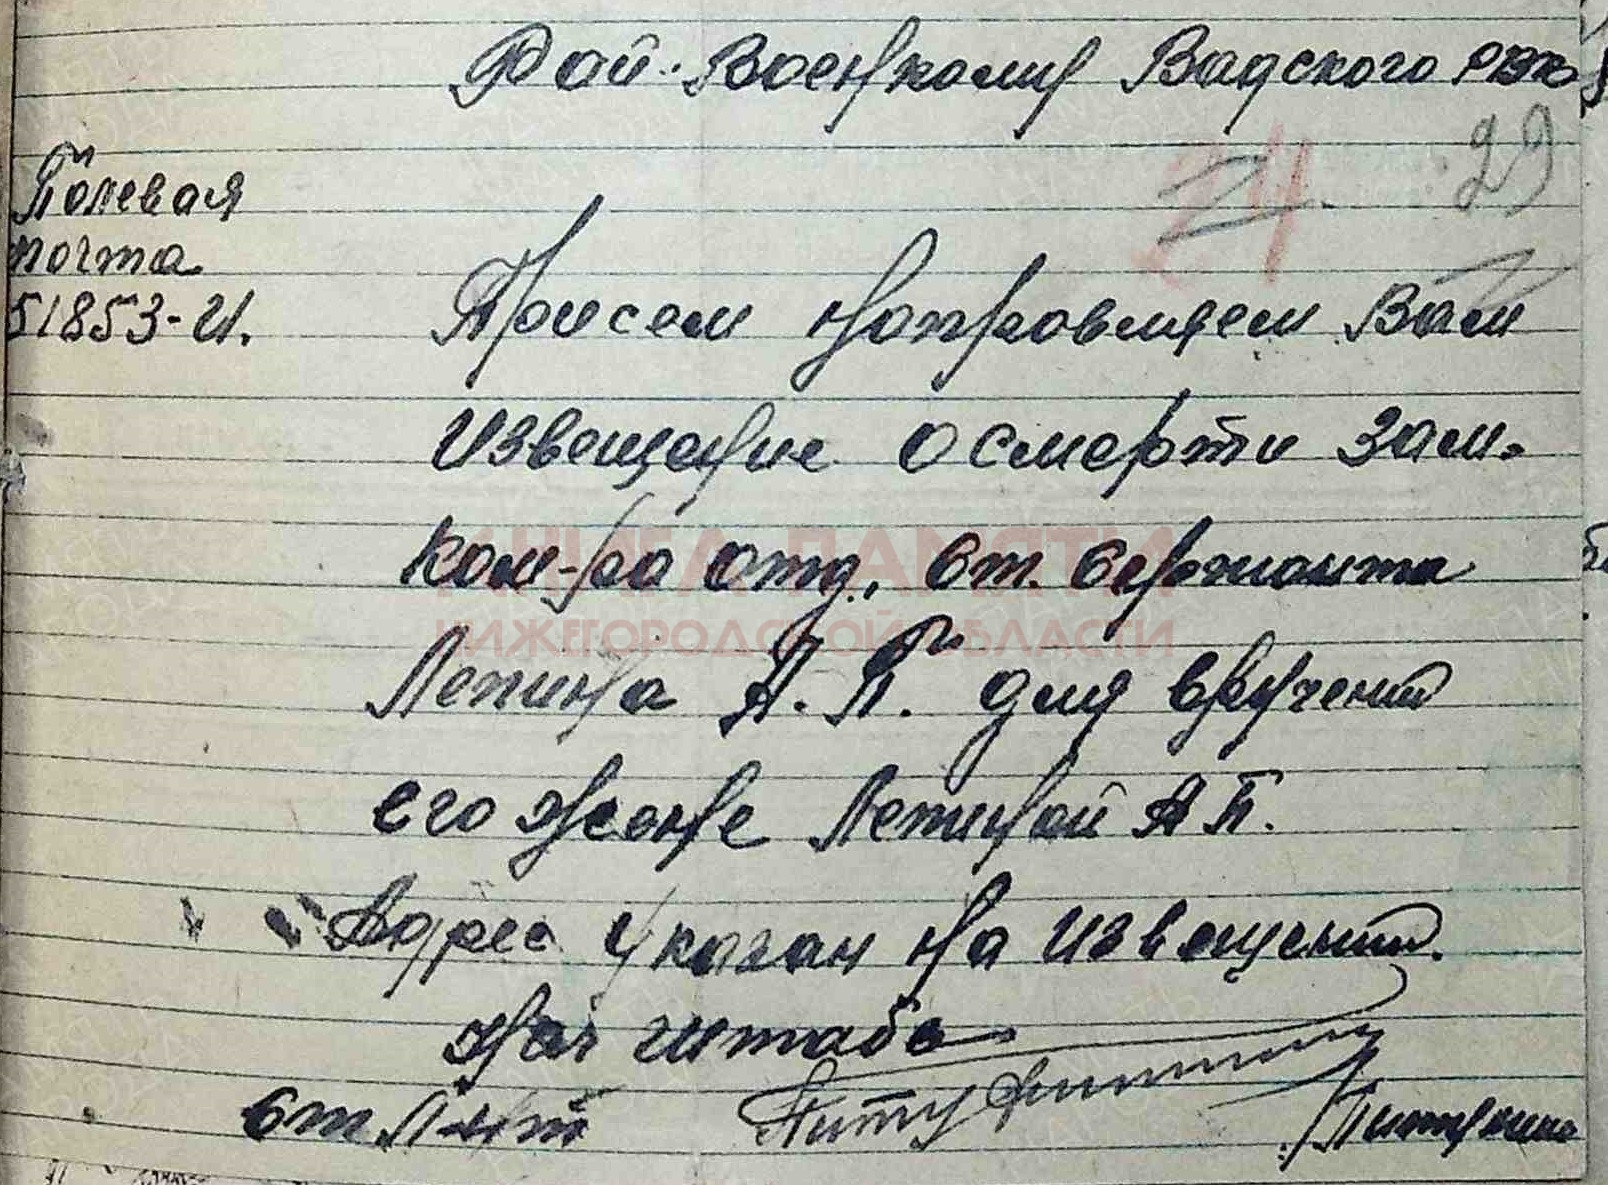 Рай. Военкому Вадского РВК
29
Полевая
почта
51853-И.
Присем направляем Вам
извещение о смерти зам.
ком-ра отд. ст. сержанта
КНИГА ПАМЯТИ
НИЖЕГОРОДСКОЙ ОБЛАСТИ
Лепина А. П. для вручении
его жене Лепиной А П.
Адрес указан на извещении.
Нач штаба
ст Л-нт